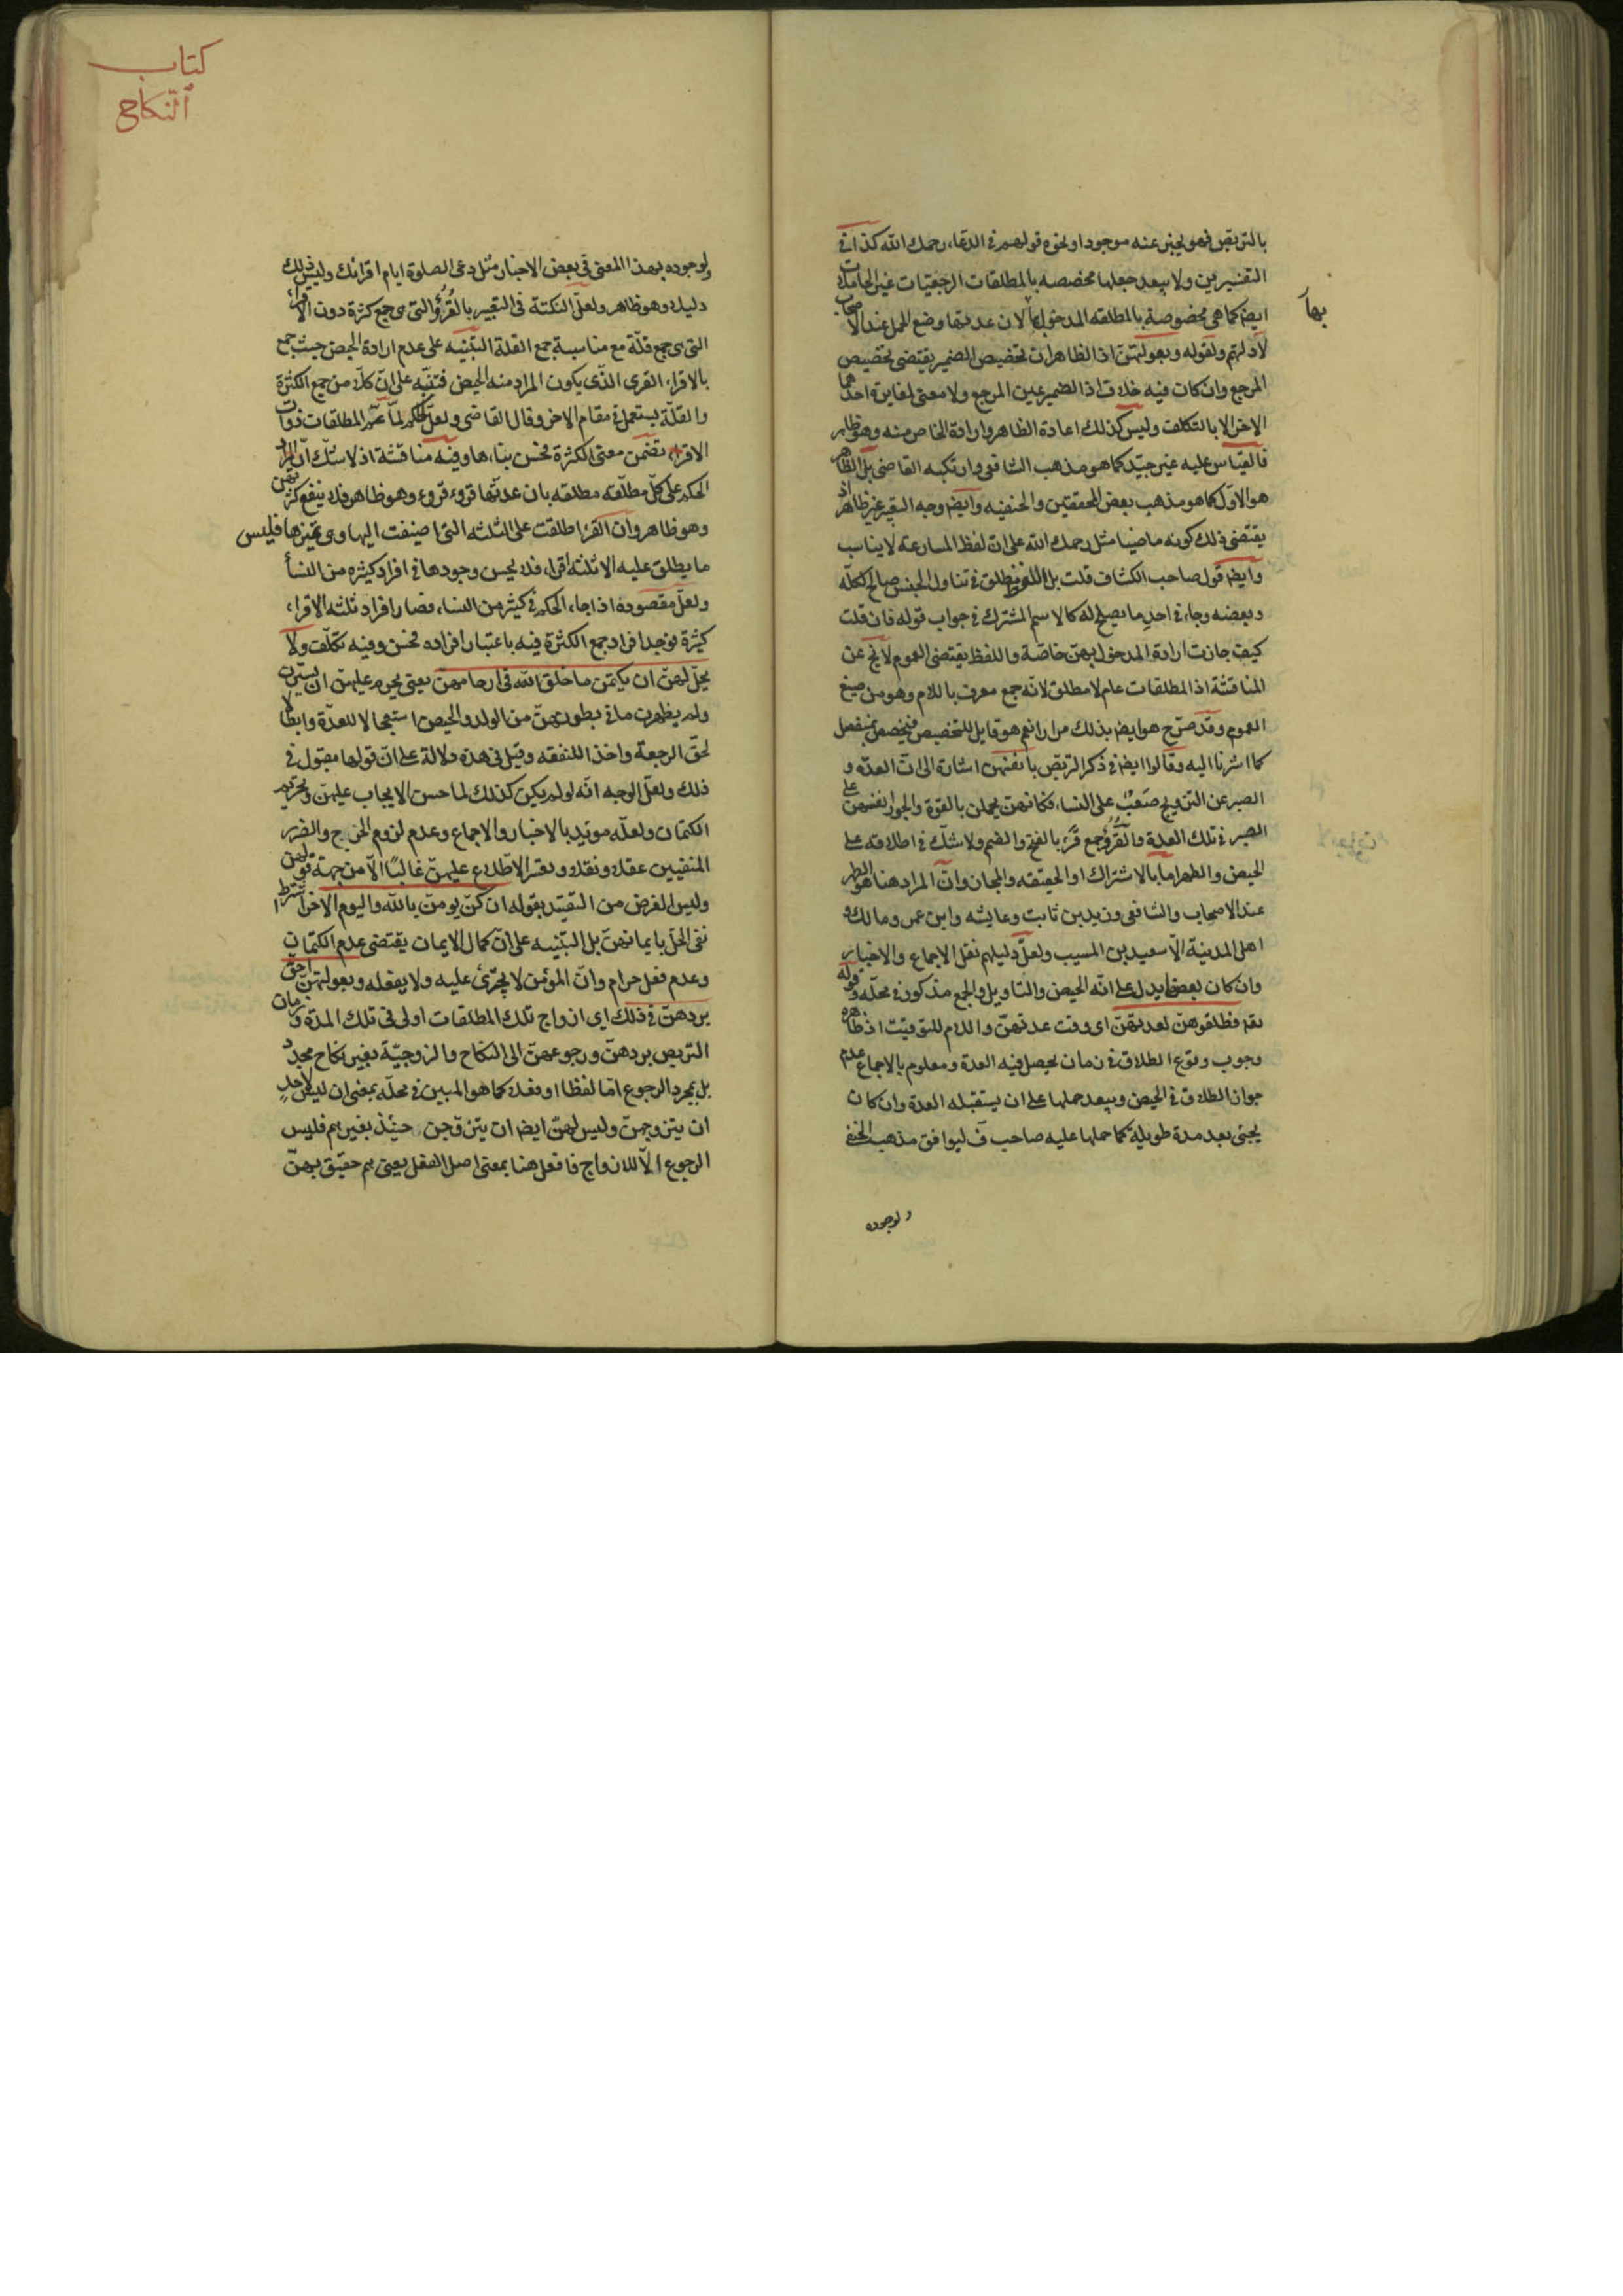 بالتربص فهو يخبر عنه موجودا ونحوه قولهم في الدعاء رحمك الله كذا في
التفسيرين ولا يبعد جعلها مخصصه بالمطلقات الرجعيات غير الحاملات
ايضا كما هي مخصوصة بالمطلقه المدخول بها لان عدتها وضع الحمل عند الاصحاب
بها
لادلتهم ولقوله وبعولتهن اذ الظاهر ان تخصيص الضمير يقتضى تخصيص
المرجع وان كان فيه خلاف اذ الضمير عين المرجع ولا معنى لمغايرة احدهما
الاخر الا بالتكلف وليس كذلك اعادة الظاهر وارادة الخاص منه وهو ظاهر
فالقياس عليه غير جيد كما هو مذهب الشافعى وارتكبه القاضى بل الظاهر
هو الاول كما هو مذهب بعض المحققين والحنفيه وايضا وجه التعبير غير ظاهر اذ
يقتضى ذلك كونه ماضيا مثل رحمك الله على ان لفظ المسارعة لا يناسب
وايضا قول صاحب الكشاف قلت بل اللفظ مطلق في تناول الجنس صالح لكله
وبعضه وجاء في احد ما يصلح له كالاسم المشترك في جواب قوله فان قلت
كيف جازت ارادة المدخول بهن خاصة واللفظ يقتضى العموم لا يخ عن
المناقشة اذ المطلقات عام لا مطلق لانه جمع معرف باللام وهو من صيغ
العموم وقد صرح هو ايضا بذلك مرارا نعم هو قابل للتخصيص فيخصص بمنفصل
كما اشرنا اليه وقالوا ايضا في ذكر التربص بانفسهن اشارة الى ان العدة و
الصبر عن التزويج صعب على النساء فكانهن يحملن بالقوة والجبر انفسهن على
الصبر في تلك العدة والقروء جمع قرء بالفتح والضم ولا شك في اطلاقه على
الحيض والطهر اما بالاشتراك او الحقيقه والمجاز وان المراد هنا هو الطهر
عند الاصحاب والشافعى وزيد بن ثابت وعايشه وابن عمر ومالك و
اهل المدينة الا سعيد بن المسيب ولعل دليلهم نقل الاجماع والاخبار
وان كان بعضها يدل على انه الحيض والتاويل والجمع مذكور في محله وقوله
تعه فطلقوهن لعدتهن اى وقت عدتهن واللام للتوقيت اذ ظاهره
وجوب وقوع الطلاق في زمان يحصل فيه العدة ومعلوم بالاجماع عدم
جواز الطلاق في الحيض ويبعد حملها على ان يستقبله العدة وان كان
يجئ بعد مدة طويلة كما حملها عليه صاحب ف ليوافق مذهب الحنفى
ولوجوده
كتاب
النكاح
ولوجوده بهذا المعنى في بعض الاخبار مثل دعى الصلوة ايام اقرائك وليس ذلك
دليله وهو ظاهر ولعل النكتة في التعبير بالقروء التى هى جمع كثرة دون الاقراء
التى هى جمع قلة مع مناسبة جمع القلة التنبيه على عدم ارادة الحيض حيث جمع
بالاقراء القرء الذى يكون المراد منه الحيض فتنبه على ان كلا من جمع الكثرة
والقلة يستعمل في مقام الاخر وقال القاضى ولعل الحكم لما عم المطلقات ذوات
الاقراء تضمن معنى الكثرة فحسن بناءها وفيه مناقشة اذ لا شك ان المراد
الحكم على كل مطلقه مطلقه بان عدتها قروء قروء وهو ظاهر فلا ينفع كثرتهن
وهو ظاهر وان القرء اطلقت على الثلثه التى اضيفت اليها وهى تميزها فليس
ما يطلق عليه الا ثلثة اقراء فلا يحسن وجودها في افراد كثيره من النساء
ولعل مقصوده اذا جاء الحكم في كثير من النساء فصار افراد ثلثه الاقراء
كثيرة فوجد افراد جمع الكثرة فيه باعتبار افراده فحسن وفيه تكلف ولا
يحل لهن ان يكتمن ما خلق الله فى ارحامهن يعنى يحرم عليهن ان يسترن
ولم يظهرن ما في بطونهن من الولد والحيض استعجالا للعدة وابطالا
لحق الرجعة واخذا للنفقه وقيل في هذه دلالة على ان قولها مقبول في
ذلك ولعل الوجه انه لو لم يكن كذلك لما حسن الايجاب عليهن وتحريم
الكتمان ولعله مويد بالاخبار والاجماع وعدم لزوم الحرج والضرر
المنفيين عقلا ونقلا وتعسر الاطلاع عليهن غالبا الا من جهة قولهن
وليس الغرض من التقييد بقوله ان كن يومن بالله واليوم الاخر اشتراط
نفى الحل بايمانهن بل التنبيه على ان كمال الايمان يقتضى عدم الكتمان
وعدم فعل حرام وان المؤمن لا يجترئ عليه ولا يفعله وبعولتهن احق
بردهن في ذلك اى ازواج تلك المطلقات اولى في تلك المدة وزمان
التربص بردهن ورجوعهن الى النكاح والزوجية بغير نكاح مجدد
بل بمجرد الرجوع اما لفظا او فعلا كما هو المبين في محله بمعنى ان ليس لاحد
ان يتزوجهن وليس لهن ايضا ان يتزوجن حينئذ بغيرهم فليس
الرجوع الا للازواج فافعل هنا بمعنى اصل الفعل يعنى هم حقيق بهن